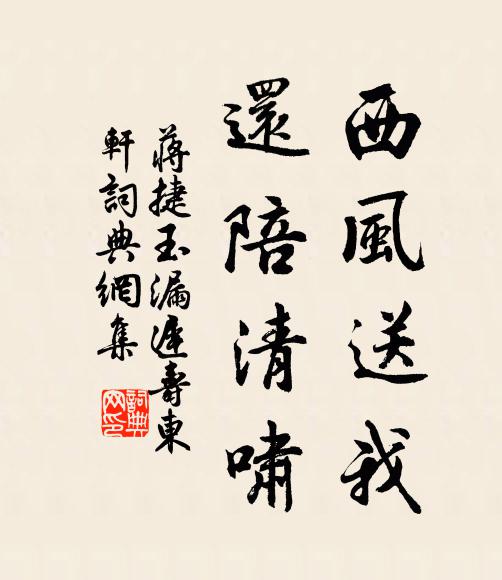 西風送我
還陪清嘯
蔣捷玉漏遲壽東
軒詞典網集
詞典
网印